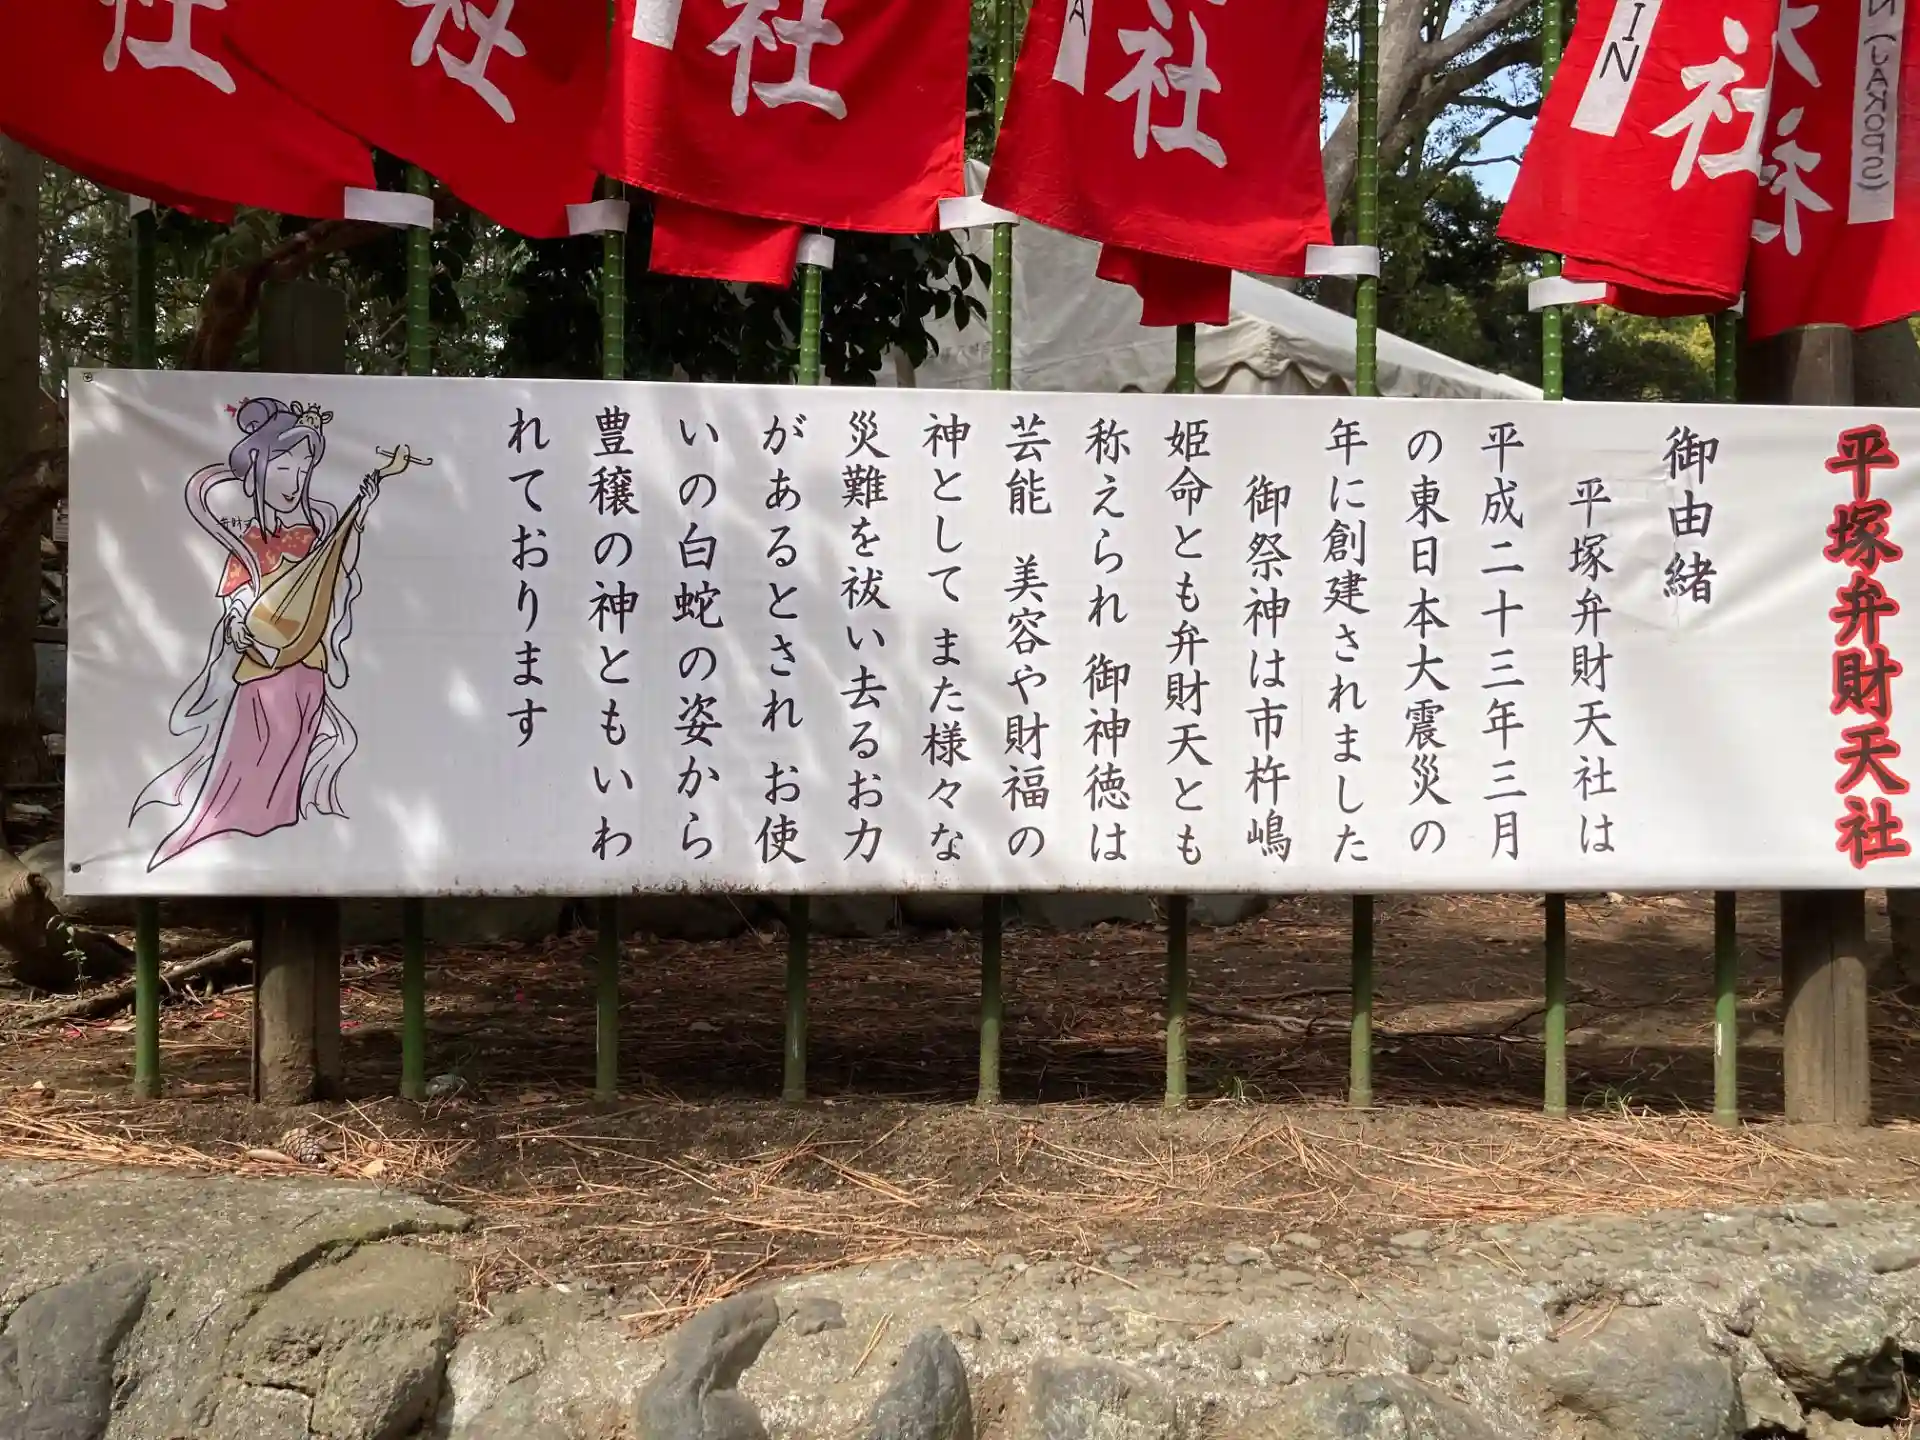 社
社
社
社
社
社
A
IN
N (JAKODS)
平塚弁財天社
御由緒
平塚弁財天社は
平成二十三年三月
の東日本大震災の
年に創建されました
御祭神は市杵嶋
姫命とも弁財天とも
称えられ 御神徳は
芸能 美容や財福の
神として また様々な
災難を祓い去るお力
があるとされ お使
いの白蛇の姿から
豊穣の神ともいわ
れております